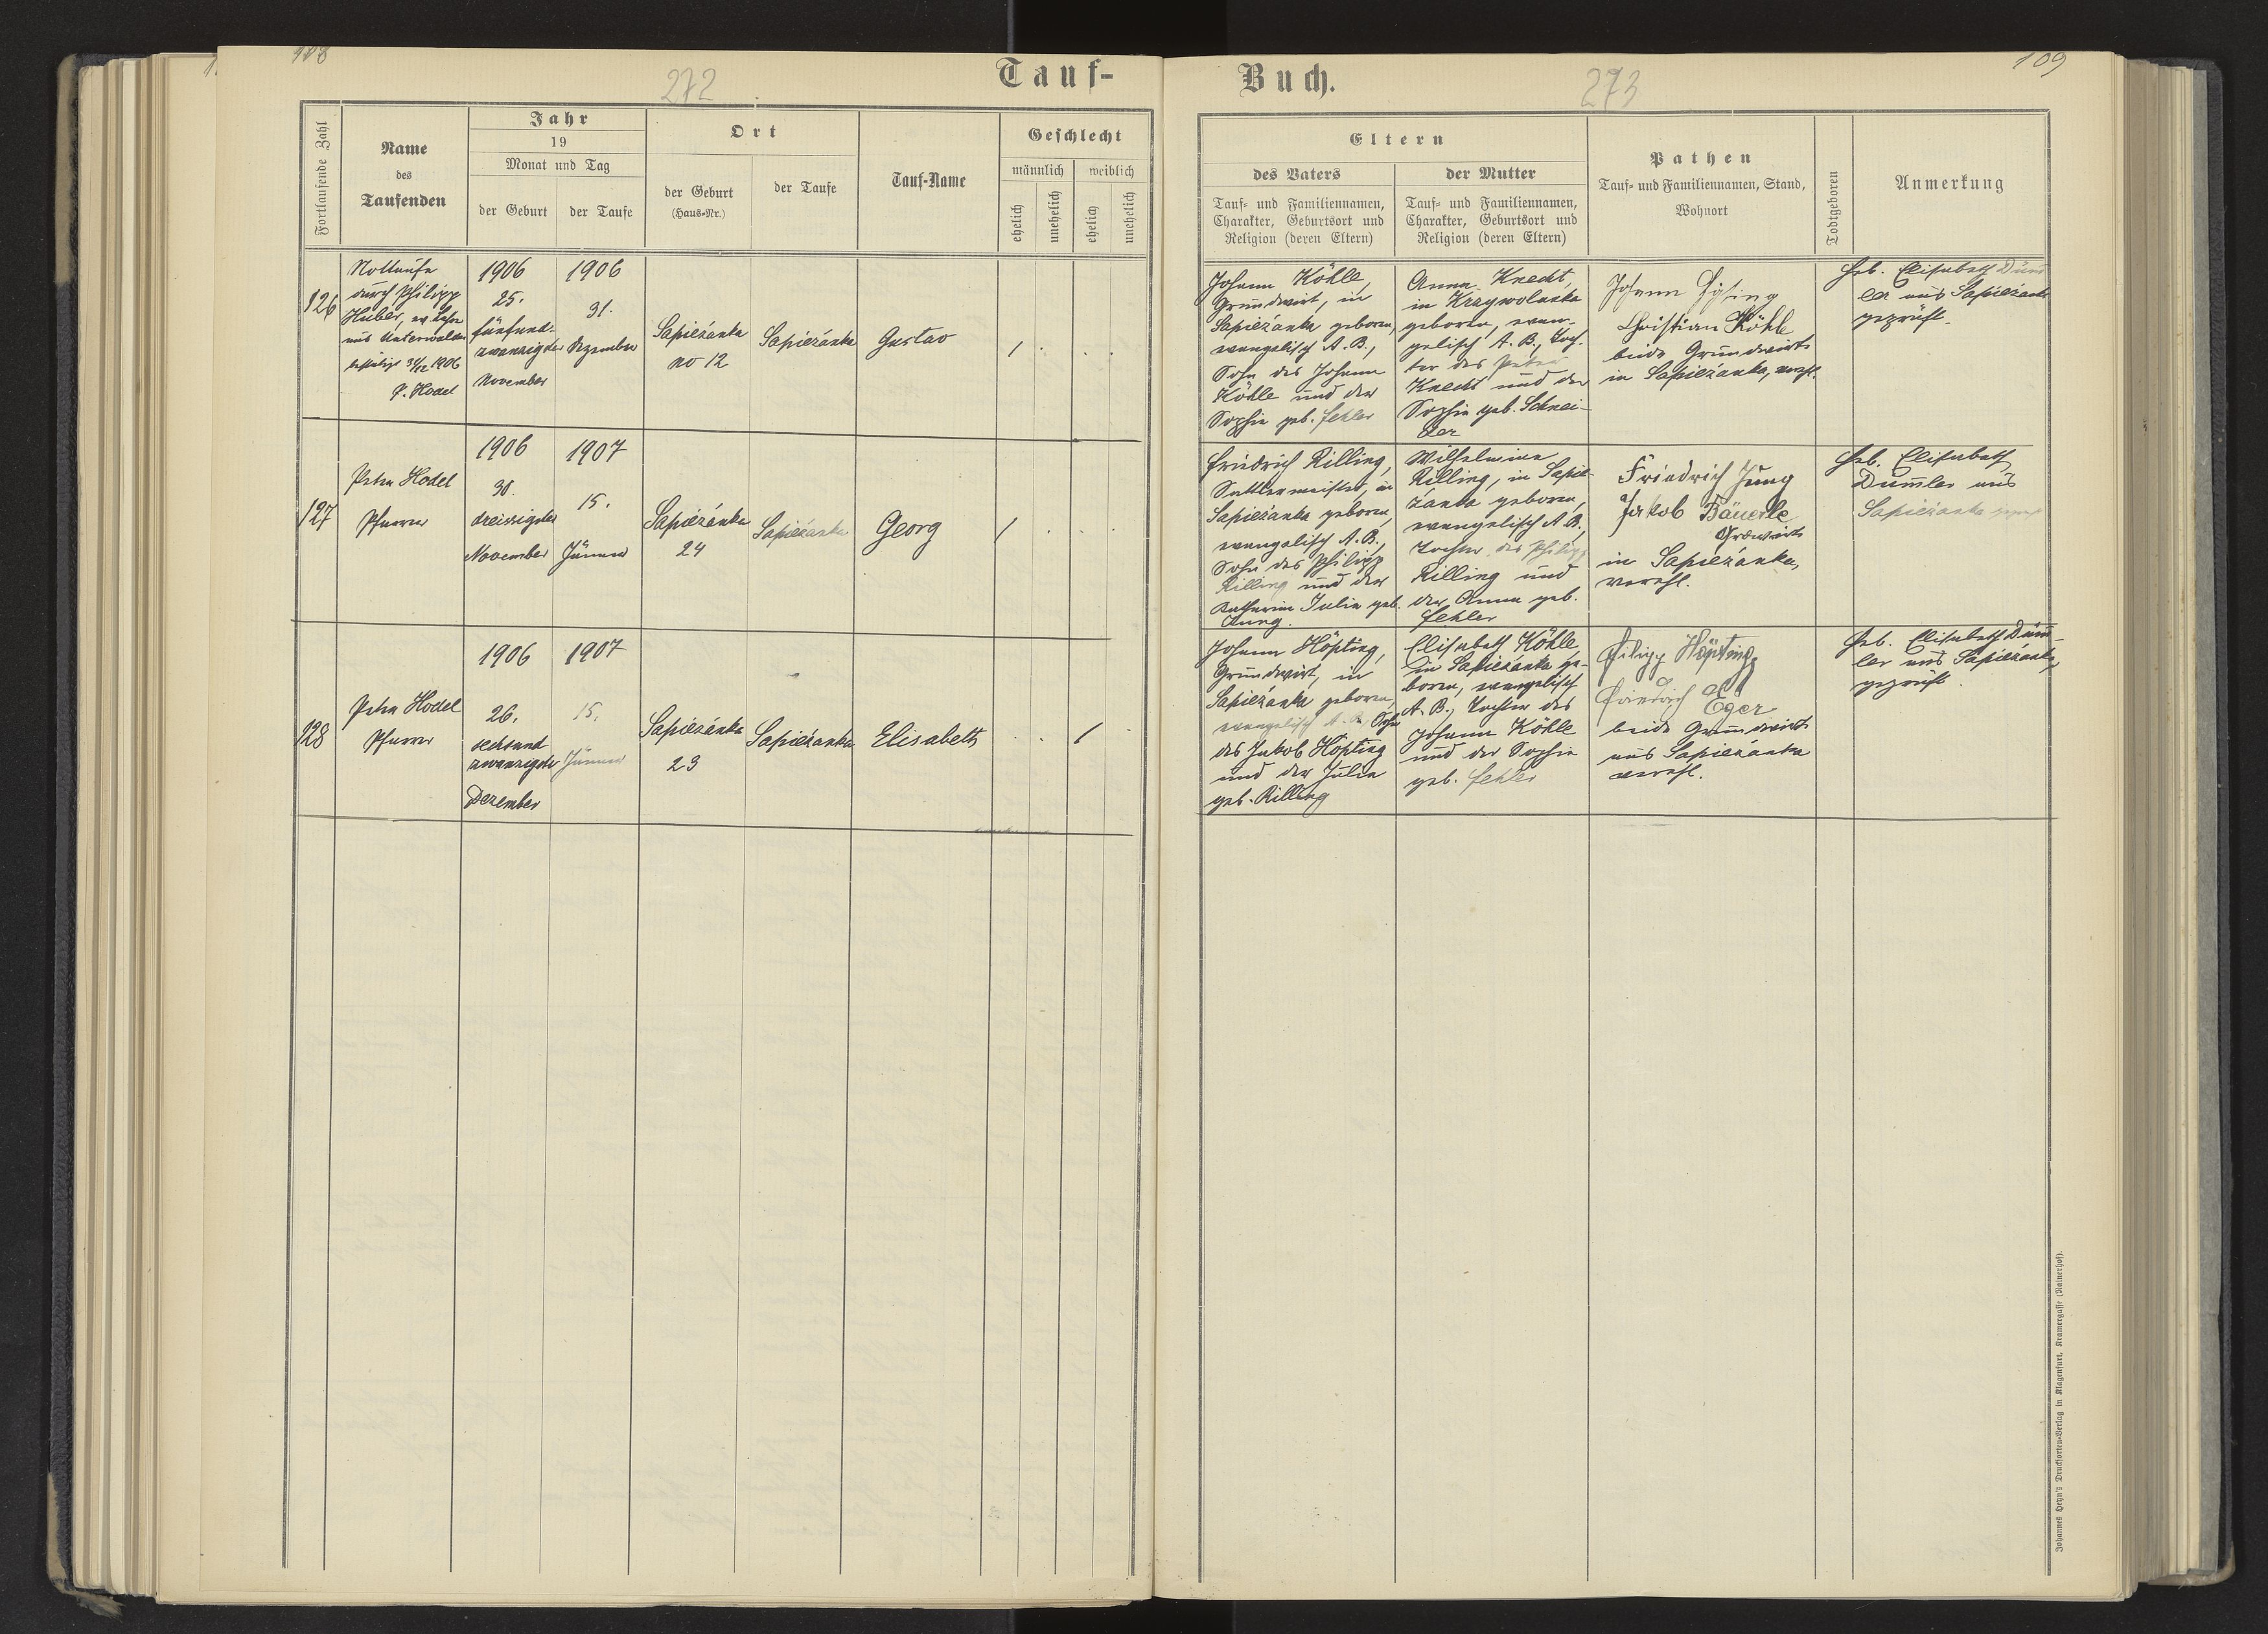 108
272
Tauf-
Fortlaufende Zahl
Name
des
Taufenden
Jahr
19
Monat und Tag
der Geburt
der Taufe
Ort
der Geburt
(Haus-Nr.)
der Taufe
Tauf-Name
Geschlecht
männlich
weiblich
ehelich
unehelich
ehelich
unehelich
126
Nottaufe
durch Philipp
Huber, ev. Lehrer
aus Unterwalden
bestätigt 31/12 1906
P. Hodel
1906
25.
fünfund-
zwanzigster
November
1906
31.
Dezember
Sapieżanka
no 12
Sapieżanka
Gustav
1 . . .
127
Peter Hodel
Pfarrer
1906
30.
dreissigster
November
1907
15.
Jänner
Sapieżanka
24
Sapieżanka
Georg
1 . . .
128
Peter Hodel
Pfarrer
1906
26.
sechsund
zwanzigster
Dezember
1907
15.
Jänner
Sapieżanka
23
Sapieżanka
Elisabeth
. . 1 .
Buch.
273
109
Eltern
des Vaters
Tauf- und Familiennamen,
Charakter, Geburtsort und
Religion (deren Eltern)
der Mutter
Tauf- und Familiennamen,
Charakter, Geburtsort und
Religion (deren Eltern)
Pathen
Tauf- und Familiennamen, Stand,
Wohnort
Todtgeboren
Anmerkung
Johann Köhle,
Grundwirt, in
Sapieżanka geboren,
evangelisch A. B.,
Sohn des Johann
Köhle und der
Sophie geb. Fehler
Anna Knecht,
in Krzywolanka
geboren, evan-
gelisch A. B., Toch-
ter des Peter
Knecht und der
Sophie geb. Schnei-
der
Johann
Christian Köhle
beide Grundwirte
in Sapieżanka, verehl.
Heb. Elisabeth Dum
ler aus Sapieżanka
geprüft.
Friedrich Rilling,
Sattlermeister, in
Sapieżanka geboren,
evangelisch A. B.,
Sohn des Philipp
Rilling und der
Katharina Julia geb.
Jung.
Wilhelmine
Rilling, in Sapie-
żanka geboren,
evangelisch A. B.,
Tochter des Philipp
Rilling und
der Anna geb.
Fehler
Friedrich Jung
Jakob Bäuerle
Grundwirte
in Sapieżanka,
verehl.
Heb. Elisabeth
Dumler aus
Sapieżanka
Johann Höpting,
Grundwirt, in
Sapieżanka geboren,
evangelisch A. B., Sohn
des Jakob Höpting
und der Julia
geb. Rilling
Elisabeth Köhle,
in Sapieżanka ge-
boren, evangelisch
A. B., Tochter des
Johann Köhle
und der Sophie
geb. Fehler
Filipp Höpting
Friedrich Eger
beide Grundwirte
aus Sapieżanka
verehl.
Heb. Elisabeth Dum-
ler aus Sapieżanka,
geprüft
Johannes Heyn's Drucksorten-Verlag in Klagenfurt, Kramergasse (Rainerhof).